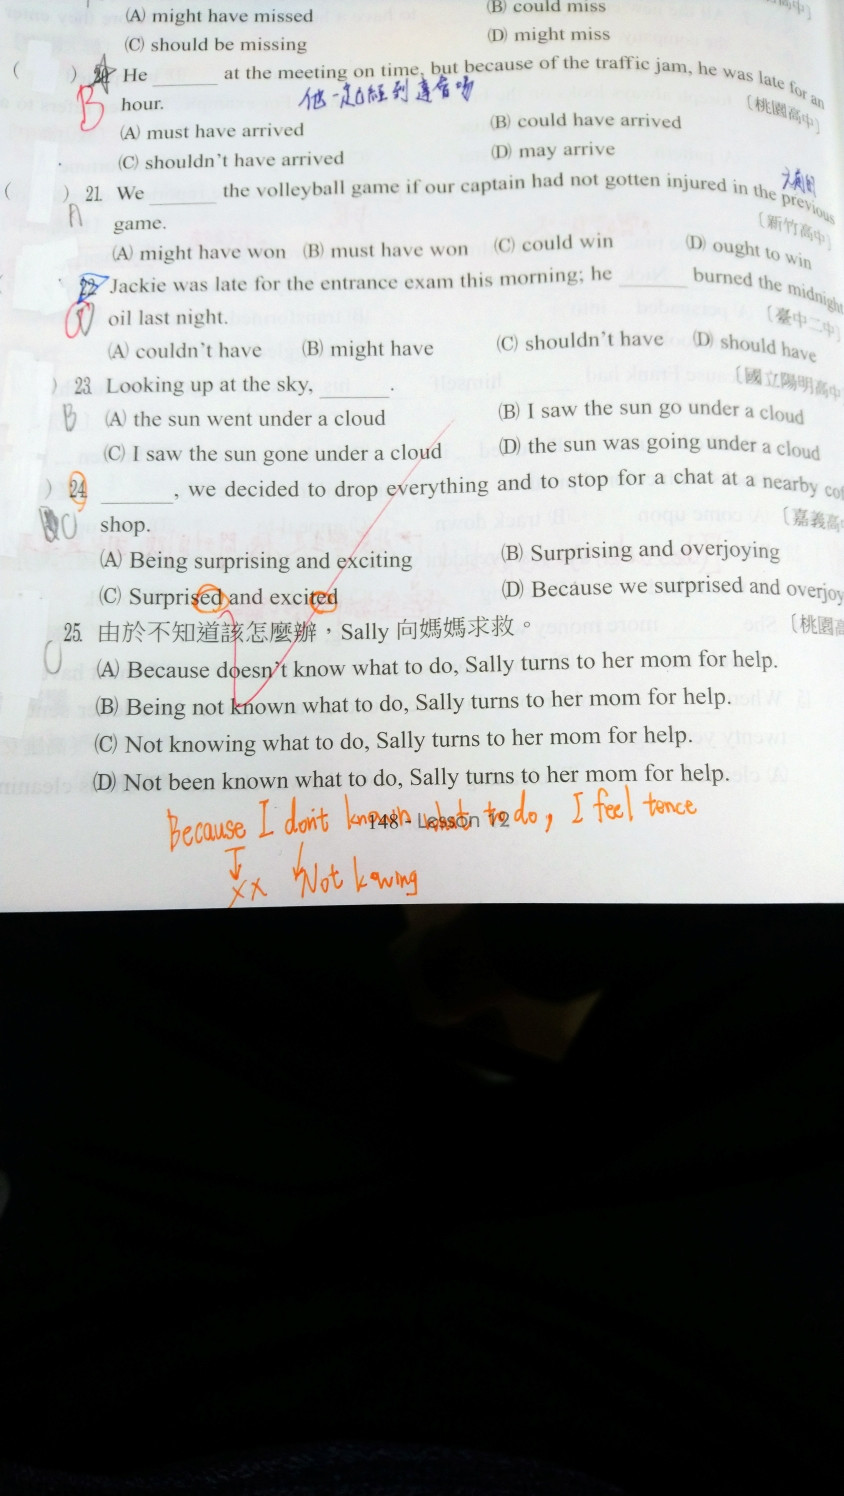 (A) might have missed (B) could miss
(C) should be missing (D) might miss
( ) He ______ at the meeting on time, but because of the traffic jam, he was late for an
B hour. 〔桃園高中〕
(A) must have arrived (B) could have arrived
(C) shouldn't have arrived (D) may arrive
( ) 21. We ______ the volleyball game if our captain had not gotten injured in the previous
A game. 〔新竹高中〕
(A) might have won (B) must have won (C) could win (D) ought to win
22. Jackie was late for the entrance exam this morning; he ______ burned the midnight
oil last night. 〔臺中二中〕
(A) couldn't have (B) might have (C) shouldn't have (D) should have
) 23. Looking up at the sky, ______. 〔國立陽明高中
B (A) the sun went under a cloud (B) I saw the sun go under a cloud
(C) I saw the sun gone under a cloud (D) the sun was going under a cloud
) 24. ______, we decided to drop everything and to stop for a chat at a nearby cof
C shop. 〔嘉義高
(A) Being surprising and exciting (B) Surprising and overjoying
(C) Surprised and excited (D) Because we surprised and overjoy
25. 由於不知道該怎麼辦，Sally 向媽媽求救。 〔桃園高
C (A) Because doesn't know what to do, Sally turns to her mom for help.
(B) Being not known what to do, Sally turns to her mom for help.
(C) Not knowing what to do, Sally turns to her mom for help.
(D) Not been known what to do, Sally turns to her mom for help.
Because I don't known what to do, I feel tence
148 - Lesson 12
xx Not kowing